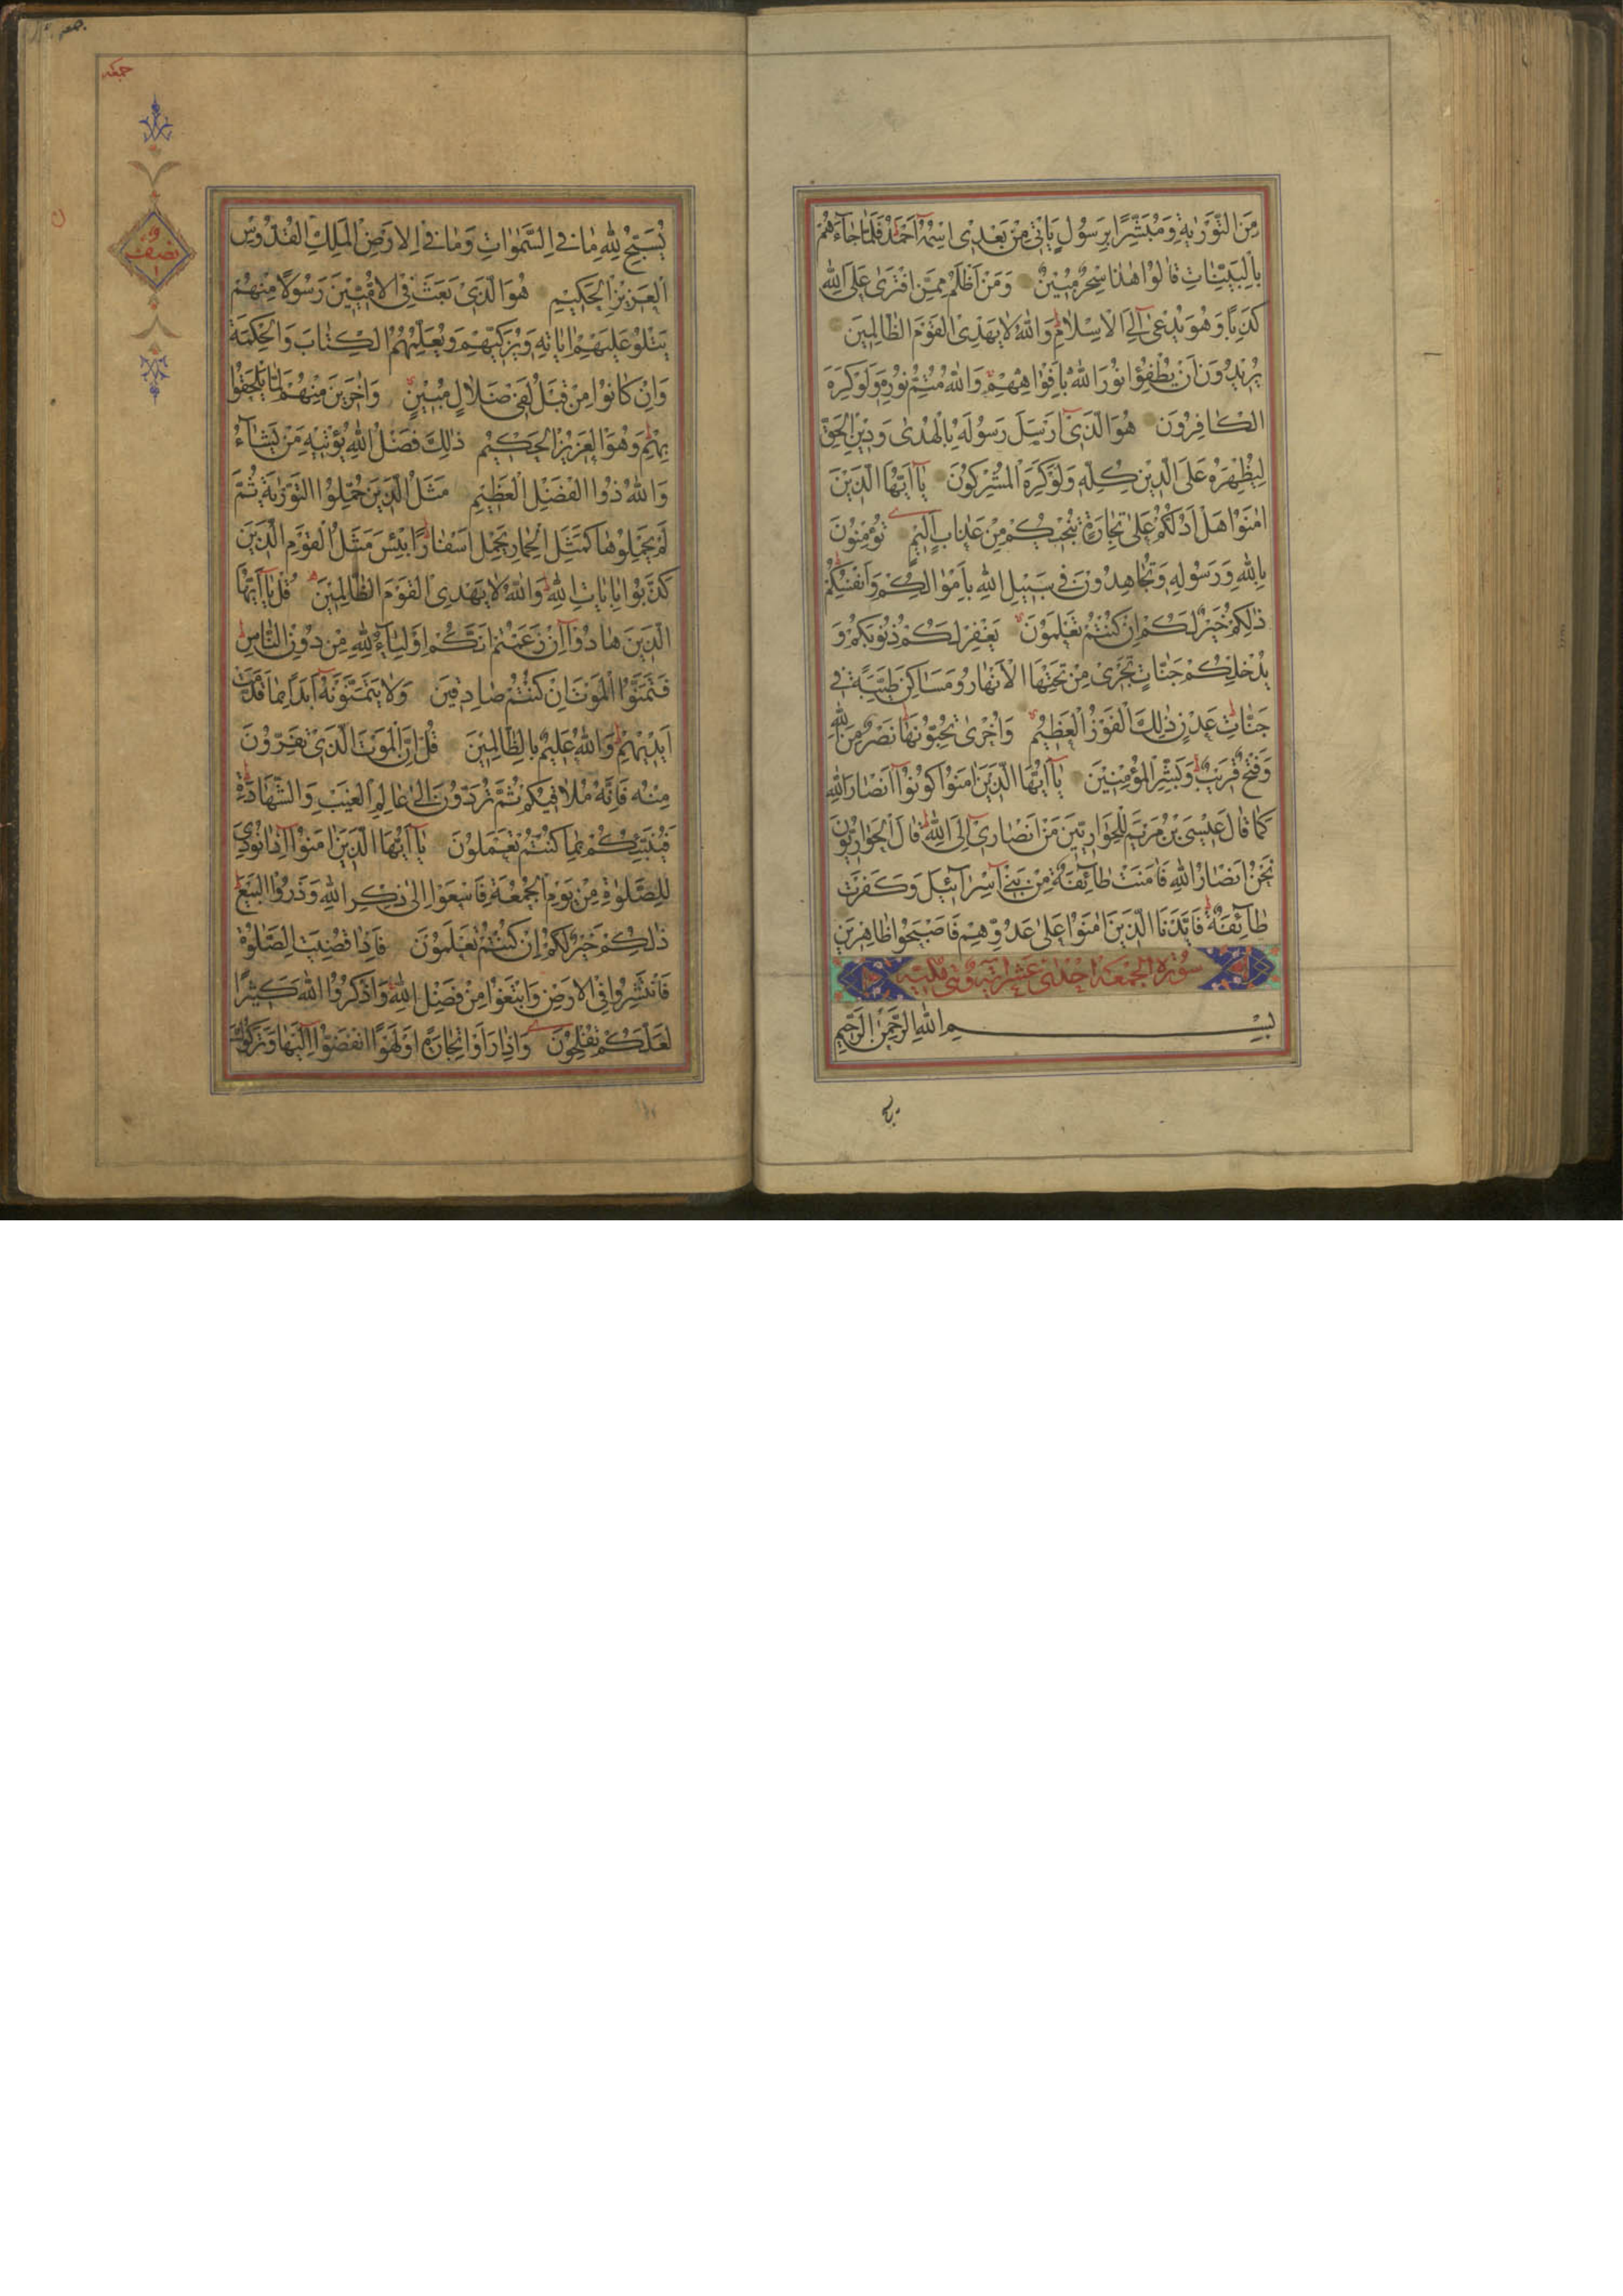 مِنَ التَّوْرٰيةِ وَمُبَشِّرًا بِرَسُولٍ يَاْتى مِنْ بَعْدِى اسْمُهُ اَحْمَدُ فَلَمّٰا جٰاءَهُمْ
بِالْبَيِّنٰاتِ قٰالُوا هٰذٰا سِحْرٌ مُبينٌ وَمَنْ اَظْلَمُ مِمَّنِ افْتَرٰى عَلَى اللّٰهِ
كَذِبًا وَهُوَ يُدْعٰى اِلَى الْاِسْلٰامِ وَاللّٰهُ لٰا يَهْدِى الْقَوْمَ الظّٰالِمينَ
يُريدُونَ اَنْ يُطْفِؤُا نُورَ اللّٰهِ بِاَفْوٰاهِهِمْ وَاللّٰهُ مُتِمُّ نُورِهِ وَلَوْ كَرِهَ
الْكٰافِرُونَ هُوَ الَّذى اَرْسَلَ رَسُولَهُ بِالْهُدٰى وَدينِ الْحَقِّ
لِيُظْهِرَهُ عَلَى الدّينِ كُلِّهِ وَلَوْ كَرِهَ الْمُشْرِكُونَ يٰا اَيُّهَا الَّذينَ
اٰمَنُوا هَلْ اَدُلُّكُمْ عَلٰى تِجٰارَةٍ تُنْجيكُمْ مِنْ عَذٰابٍ اَليمٍ تُؤْمِنُونَ
بِاللّٰهِ وَرَسُولِهِ وَتُجٰاهِدُونَ فى سَبيلِ اللّٰهِ بِاَمْوٰالِكُمْ وَاَنْفُسِكُمْ
ذٰلِكُمْ خَيْرٌ لَكُمْ اِنْ كُنْتُمْ تَعْلَمُونَ يَغْفِرْ لَكُمْ ذُنُوبَكُمْ وَ
يُدْخِلْكُمْ جَنّٰاتٍ تَجْرى مِنْ تَحْتِهَا الْاَنْهٰارُ وَمَسٰاكِنَ طَيِّبَةً فى
جَنّٰاتِ عَدْنٍ ذٰلِكَ الْفَوْزُ الْعَظيمُ وَاُخْرٰى تُحِبُّونَهٰا نَصْرٌ مِنَ اللّٰهِ
وَفَتْحٌ قَريبٌ وَبَشِّرِ الْمُؤْمِنينَ يٰا اَيُّهَا الَّذينَ اٰمَنُوا كُونُوا اَنْصٰارَ اللّٰهِ
كَمٰا قٰالَ عيسَى بْنُ مَرْيَمَ لِلْحَوٰارِيّينَ مَنْ اَنْصٰارى اِلَى اللّٰهِ قٰالَ الْحَوٰارِيُّونَ
نَحْنُ اَنْصٰارُ اللّٰهِ فَاٰمَنَتْ طٰائِفَةٌ مِنْ بَنى اِسْرٰائيلَ وَكَفَرَتْ
طٰائِفَةٌ فَاَيَّدْنَا الَّذينَ اٰمَنُوا عَلٰى عَدُوِّهِمْ فَاَصْبَحُوا ظٰاهِرينَ
سُورَة الجُمْعَة احدى عشر اية وهى
بِسْمِ اللّٰهِ الرَّحْمٰنِ الرَّحيمِ
جمعه
جمعه
نصف
يُسَبِّحُ لِلّٰهِ مٰا فِى السَّمٰوٰاتِ وَمٰا فِى الْاَرْضِ الْمَلِكِ الْقُدُّوسِ
الْعَزيزِ الْحَكيمِ هُوَ الَّذى بَعَثَ فِى الْاُمِّيّينَ رَسُولًا مِنْهُمْ
يَتْلُو عَلَيْهِمْ اٰيٰاتِهِ وَيُزَكّيهِمْ وَيُعَلِّمُهُمُ الْكِتٰابَ وَالْحِكْمَةَ
وَاِنْ كٰانُوا مِنْ قَبْلُ لَفى ضَلٰالٍ مُبينٍ وَاٰخَرينَ مِنْهُمْ لَمّٰا يَلْحَقُوا
بِهِمْ وَهُوَ الْعَزيزُ الْحَكيمُ ذٰلِكَ فَضْلُ اللّٰهِ يُؤْتيهِ مَنْ يَشٰاءُ
وَاللّٰهُ ذُو الْفَضْلِ الْعَظيمِ مَثَلُ الَّذينَ حُمِّلُوا التَّوْرٰيةَ ثُمَّ
لَمْ يَحْمِلُوهٰا كَمَثَلِ الْحِمٰارِ يَحْمِلُ اَسْفٰارًا بِئْسَ مَثَلُ الْقَوْمِ الَّذينَ
كَذَّبُوا بِاٰيٰاتِ اللّٰهِ وَاللّٰهُ لٰا يَهْدِى الْقَوْمَ الظّٰالِمينَ قُلْ يٰا اَيُّهَا
الَّذينَ هٰادُوا اِنْ زَعَمْتُمْ اَنَّكُمْ اَوْلِيٰاءُ لِلّٰهِ مِنْ دُونِ النّٰاسِ
فَتَمَنَّوُا الْمَوْتَ اِنْ كُنْتُمْ صٰادِقينَ وَلٰا يَتَمَنَّوْنَهُ اَبَدًا بِمٰا قَدَّمَتْ
اَيْديهِمْ وَاللّٰهُ عَليمٌ بِالظّٰالِمينَ قُلْ اِنَّ الْمَوْتَ الَّذى تَفِرُّونَ
مِنْهُ فَاِنَّهُ مُلٰاقيكُمْ ثُمَّ تُرَدُّونَ اِلٰى عٰالِمِ الْغَيْبِ وَالشَّهٰادَةِ
فَيُنَبِّئُكُمْ بِمٰا كُنْتُمْ تَعْمَلُونَ يٰا اَيُّهَا الَّذينَ اٰمَنُوا اِذٰا نُودِىَ
لِلصَّلٰوةِ مِنْ يَوْمِ الْجُمُعَةِ فَاسْعَوْا اِلٰى ذِكْرِ اللّٰهِ وَذَرُوا الْبَيْعَ
ذٰلِكُمْ خَيْرٌ لَكُمْ اِنْ كُنْتُمْ تَعْلَمُونَ فَاِذٰا قُضِيَتِ الصَّلٰوةُ
فَانْتَشِرُوا فِى الْاَرْضِ وَابْتَغُوا مِنْ فَضْلِ اللّٰهِ وَاذْكُرُوا اللّٰهَ كَثيرًا
لَعَلَّكُمْ تُفْلِحُونَ وَاِذٰا رَاَوْا تِجٰارَةً اَوْ لَهْوًا انْفَضُّوا اِلَيْهٰا وَتَرَكُوكَ